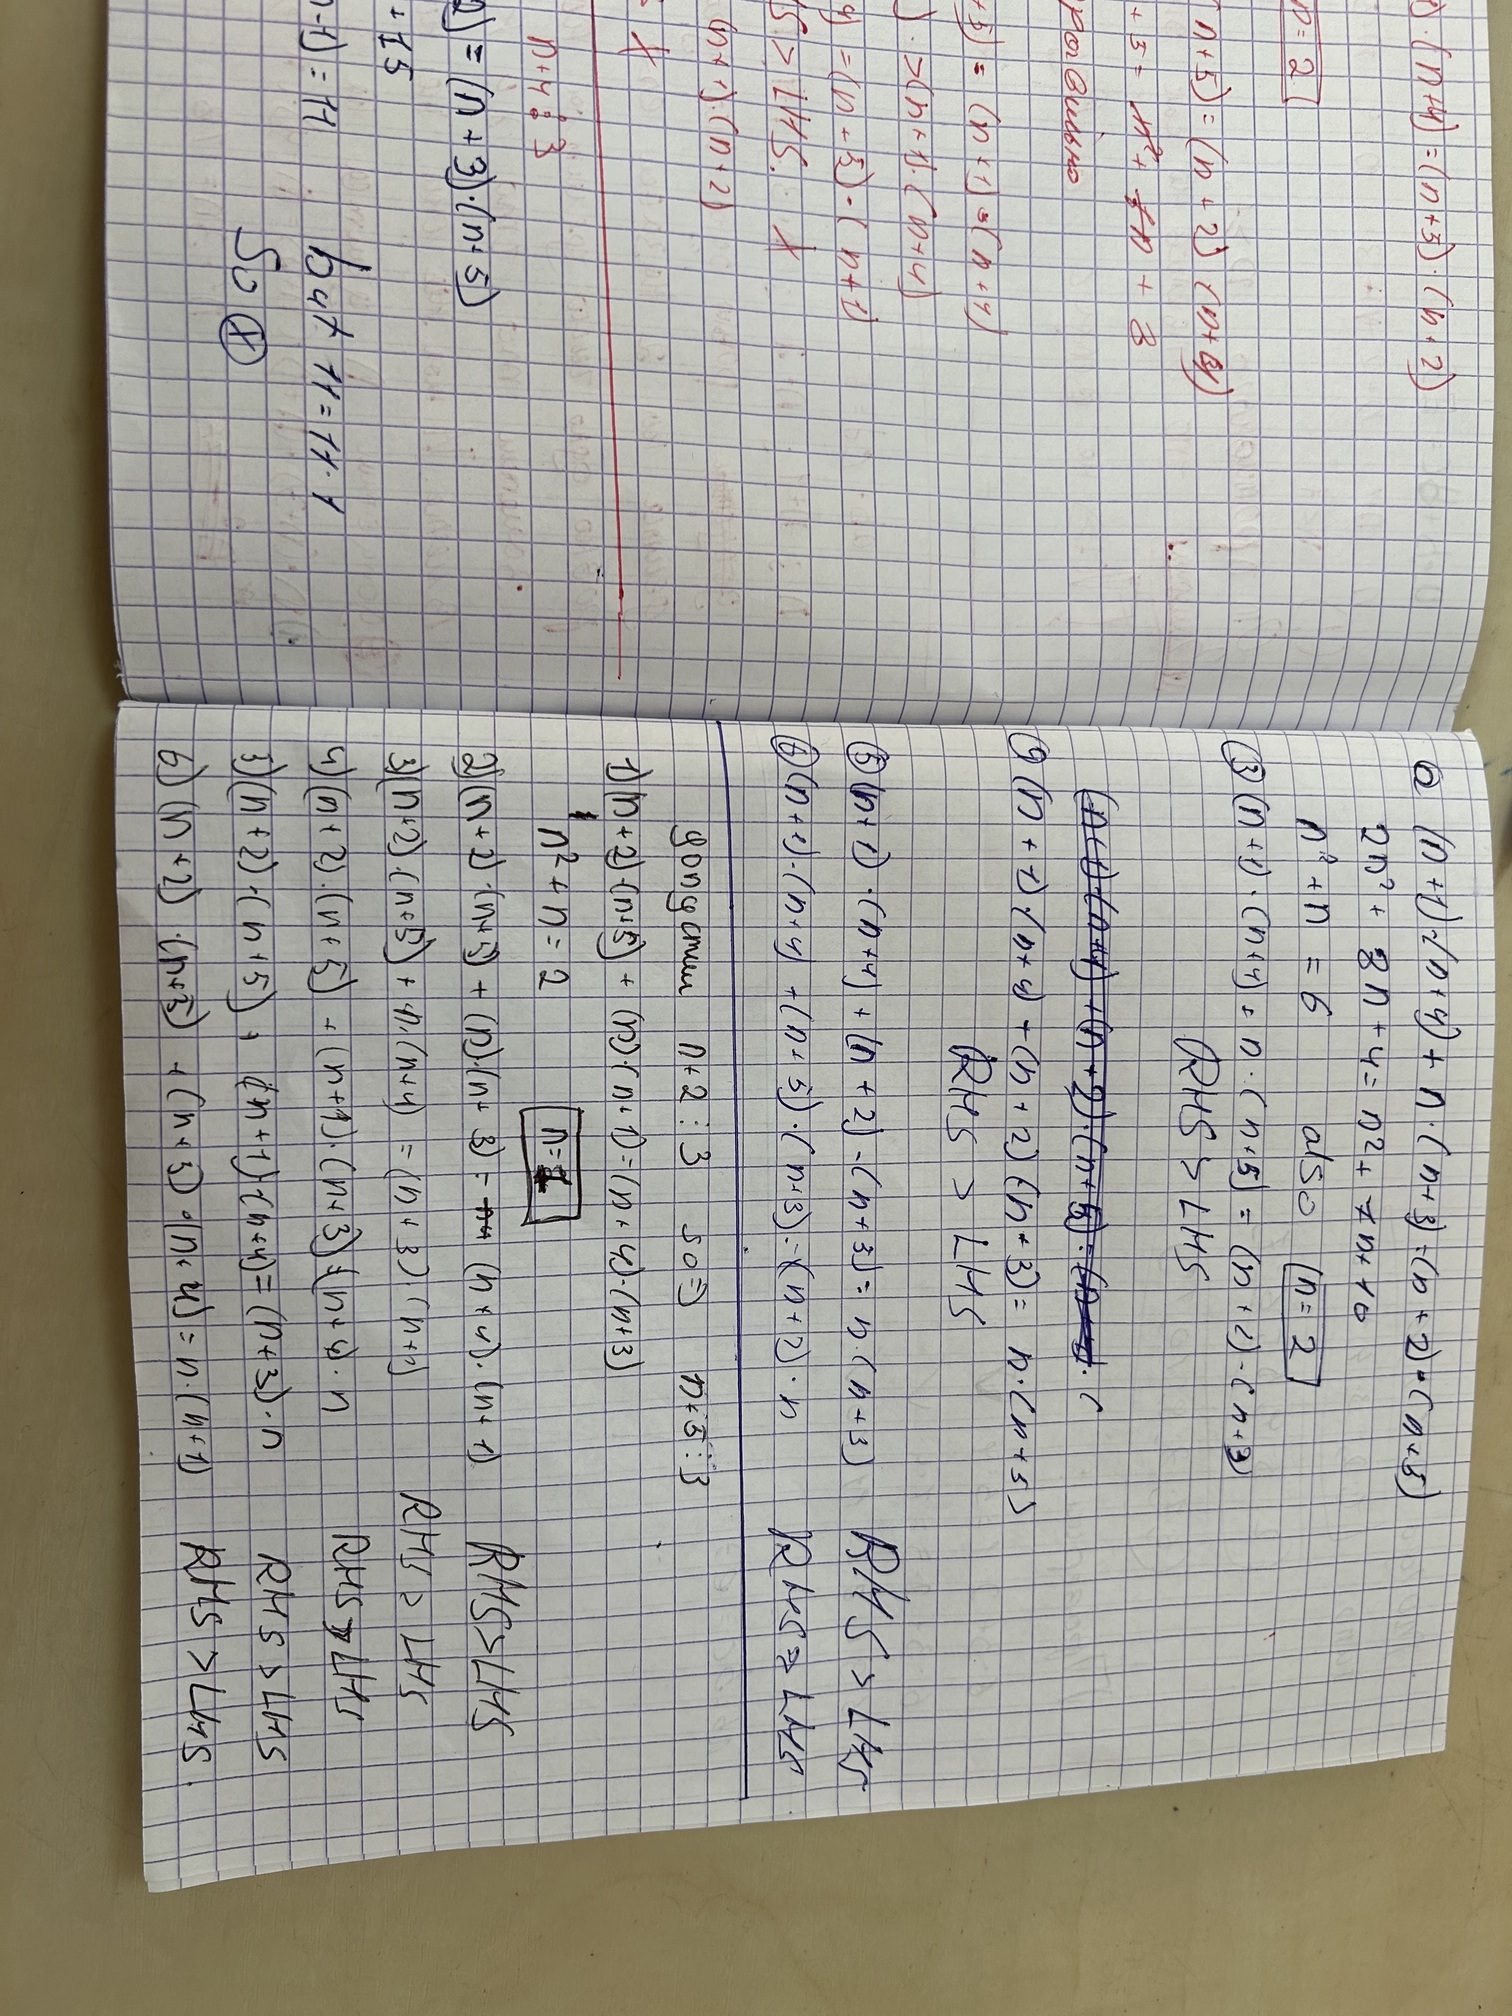 ) · (n+4) = (n+5) · (n+2)
n = 2
n+5) = (n+2) (n+4)
+ 5 = n² + 6n + 8
+5) = (n+1) (n+4)
) · > (n+1) · (n+4)
4) = (n+5) · (n+1)
S > LHS. X
(n+1) · (n+2)
X
n+4 ⋮ 3
2) = (n+3) · (n+5)
+ 15
n-1) = 11 but 11 = 11 · 1
So X
② (n+1) · (n+4) + n · (n+3) = (n+2) · (n+5)
2n² + 8n + 4 = n² + 7n + 10
n² + n = 6 also n = 2
③ (n+1) · (n+4) + n · (n+5) = (n+2) · (n+3)
RHS > LHS
(n+1) · (n+4) + (n+2) · (n+5) = (n+ · (
④ (n+1) · (n+4) + (n+2) (n+3) = n · (n+5)
RHS > LHS
⑤ (n+1) · (n+4) + (n+2) · (n+3) = n · (n+3) RHS > LHS
⑥ (n+1) · (n+4) + (n+5) · (n+3) = (n+2) · n RHS > LHS
допустим n+2 ⋮ 3 so => n+5 ⋮ 3
1) (n+2) · (n+5) + (n) · (n+1) = (n+4) · (n+3)
n² + n = 2 n=1
2) (n+2) · (n+5) + (n) · (n+3) = (n+4) · (n+1) RHS > LHS
3) (n+2) · (n+5) + n · (n+4) = (n+3) (n+1) RHS > LHS
4) (n+2) · (n+5) + (n+1) · (n+3) = (n+4) · n RHS > LHS
5) (n+2) · (n+5) + (n+1) · (n+4) = (n+3) · n RHS > LHS
6) (n+2) · (n+5) + (n+3) · (n+4) = n · (n+1) RHS > LHS